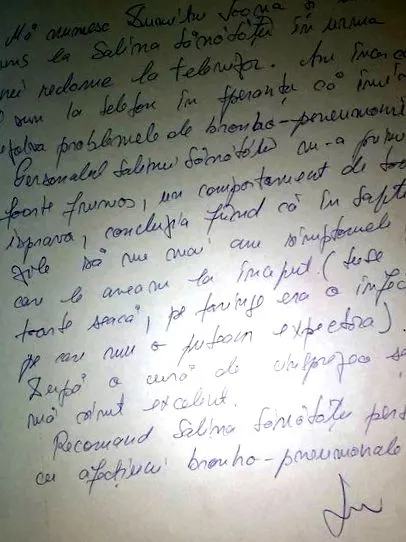 Mă numesc Dumitru Ioana
la Salina Sănătății în urma
reclame la televizor. Am
sun la telefon în speranța că
problemele de bronho-pneumoni
Personalul Salinei Sănătății m-a
foarte frumos, un comportament de
isprava, concluzia fiind că în
zile să nu mai am simptomele
care le aveam la început (tuse
foarte seacă, pe faringe era o infec
pe care nu o puteam expectora).
După o cură de unsprezece
mă simt excelent.
Recomand Salina Sănătății pers
cu afecțiuni bronho-pneumonale